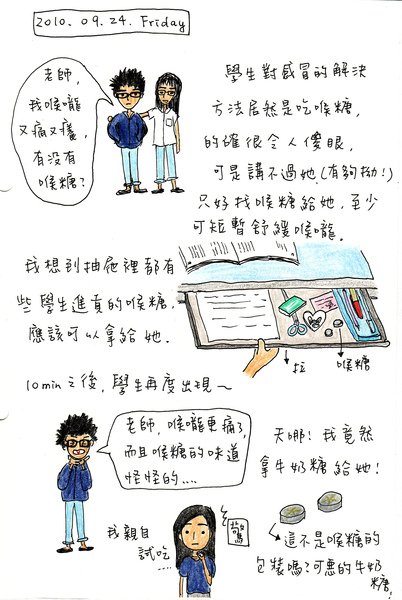 2010. 09. 24. Friday
老師,
我喉嚨
又痛又癢,
有沒有
喉糖?
學生對感冒的解決
方法居然是吃喉糖,
的確很令人傻眼,
可是講不過她.(有夠拗!)
只好找喉糖給她,至少
可短暫舒緩喉嚨.
我想到抽屜裡都有
些學生進貢的喉糖,
應該可以拿給她.
拉
喉糖
10min之後,學生再度出現~
老師,喉嚨更痛了,
而且喉糖的味道
怪怪的....
天哪!我竟然
拿牛奶糖給她!
我親自
試吃....
驚
這不是喉糖的
包裝嗎?可惡的牛奶
糖!